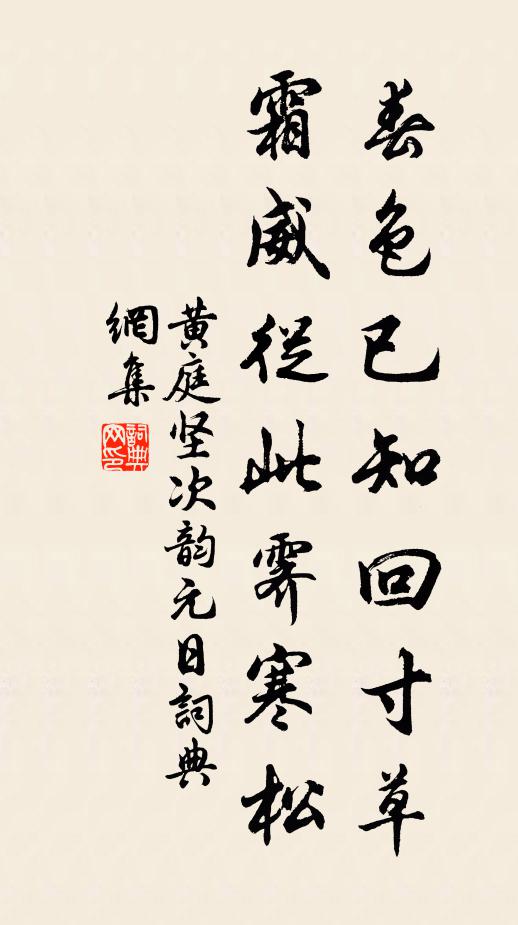 春色已知回寸草
霜威從此霽寒松
黄庭坚次韵元日詞典
網集
詞典
网印